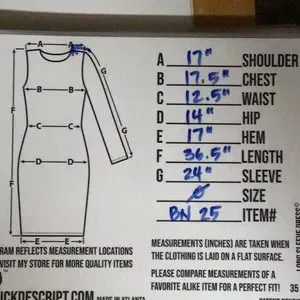 A
G
B B
C C
D D
F
F
G
E E
A 17" SHOULDER
B 17.5" CHEST
C 12.5" WAIST
D 14" HIP
E 17" HEM
F 36.5" LENGTH
G 24" SLEEVE
SIZE
BN 25 ITEM#
RAM REFLECTS MEASUREMENT LOCATIONS
VISIT MY STORE FOR MORE QUALITY ITEMS
CKDESCRIPT.COM MADE IN ATLANTA
MEASUREMENTS (INCHES) ARE TAKEN WHEN
THE CLOTHING IS LAID ON A FLAT SURFACE.
PLEASE COMPARE MEASUREMENTS OF A
FAVORITE ALIKE ITEM FOR A PERFECT FIT!
35